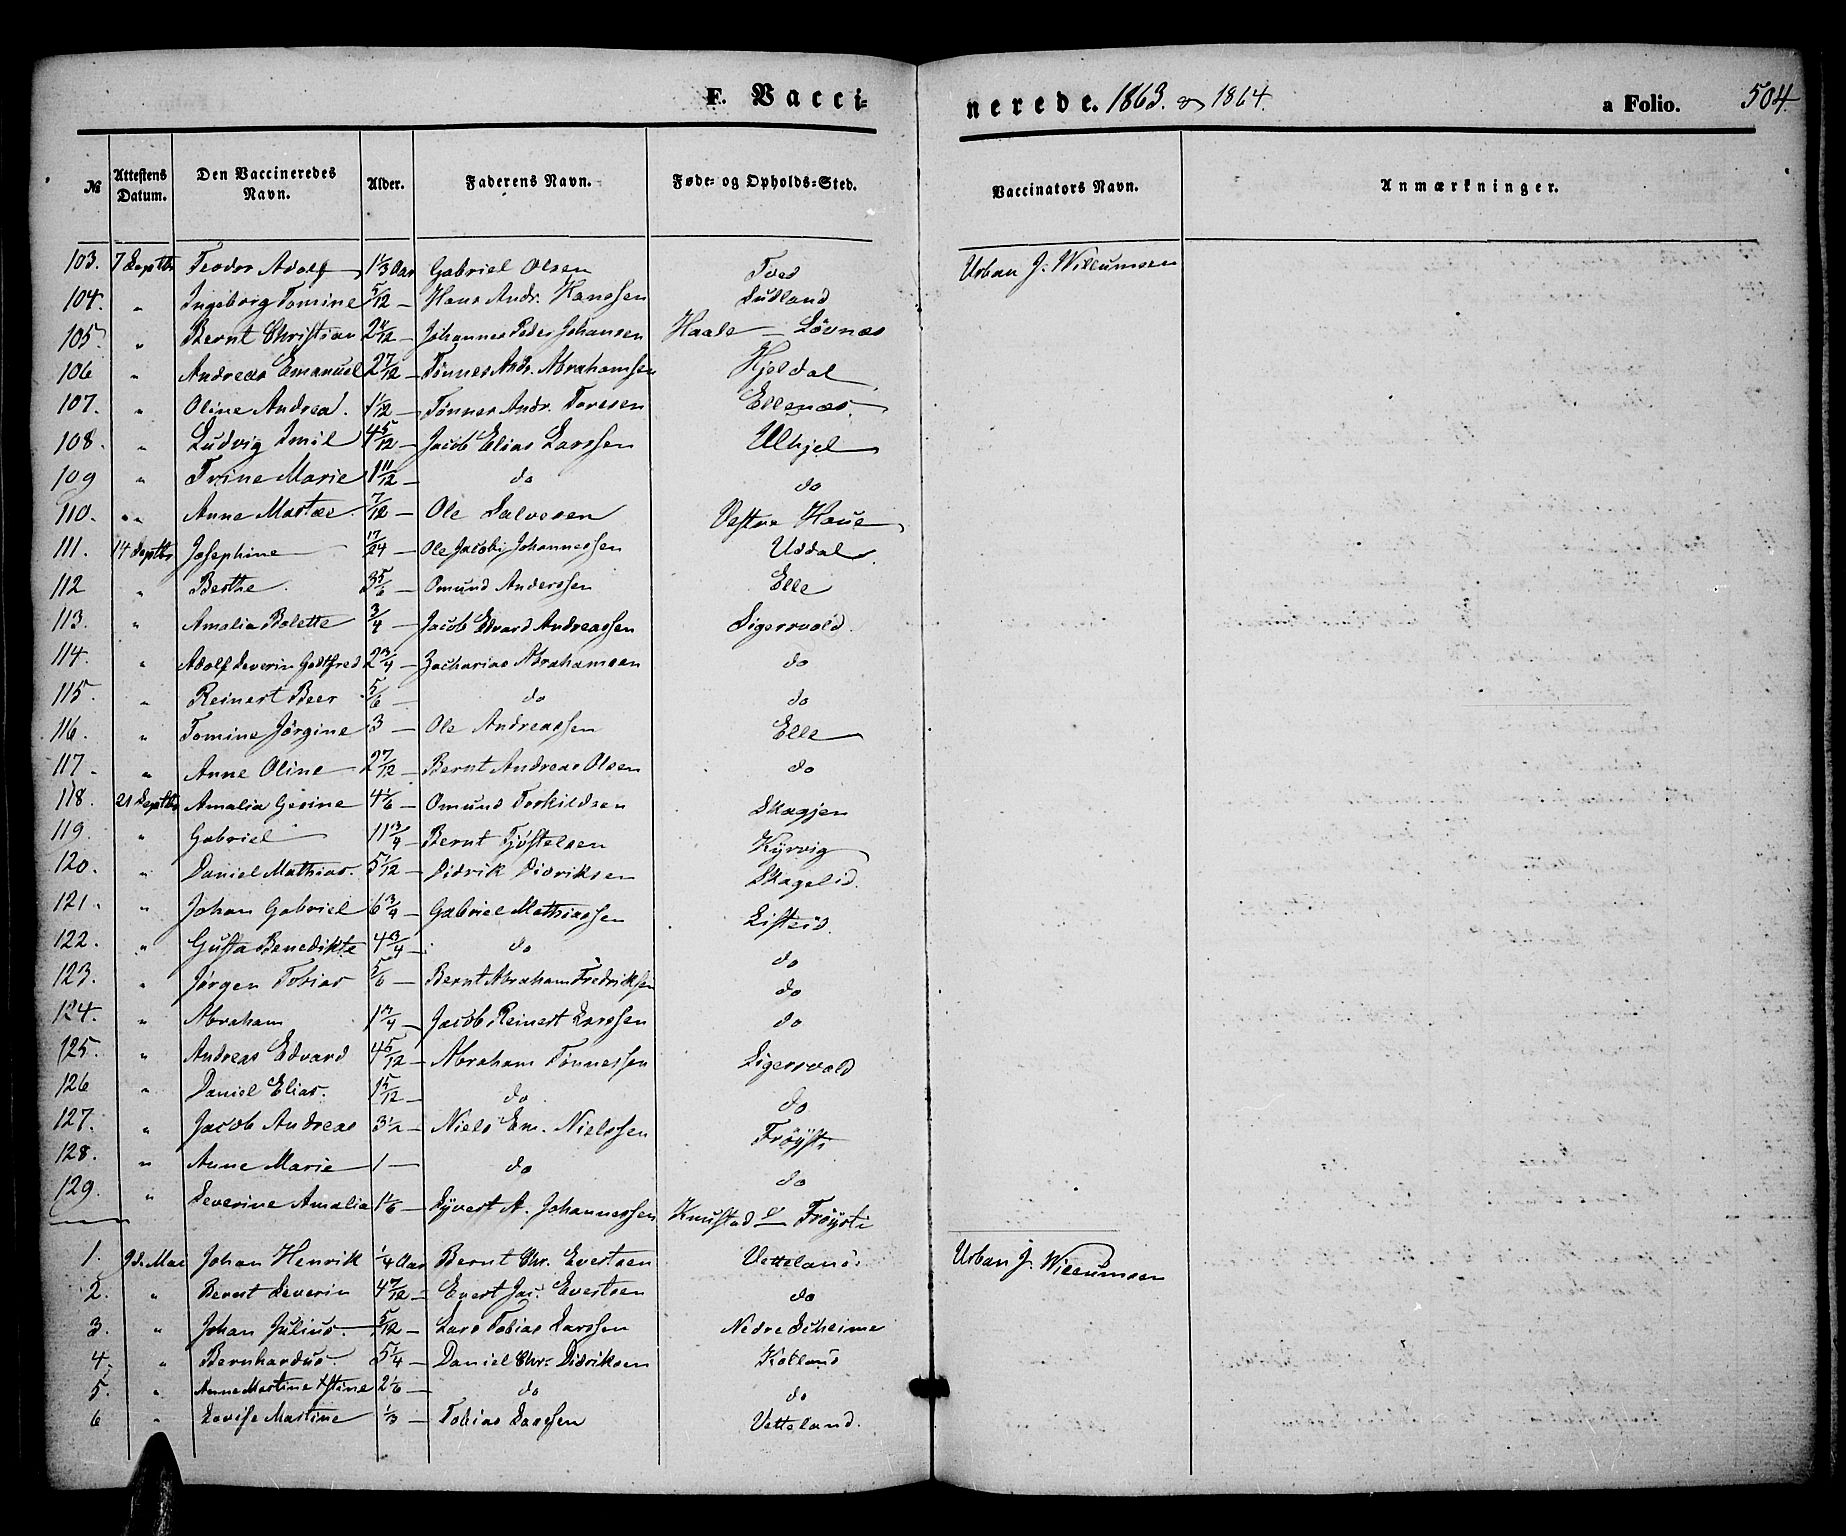 F. Vaccinerede. 1863. & 1864. a Folio. 504.
№ Attestens Datum. Den Vaccineredes Navn. Alder. Faderens Navn. Føde- og Opholds-Sted. Vaccinators Navn. Anmærkninger.
103. 7 Septbr Teodor Adolf 1 1/3 Aar Gabriel Olsen Tved Urban J. Willumsen
104. " Ingeborg Tomine 5/12 — Hans Andr. Hanssen Sudland
105 " Bernt Christian — Johannes Peder Johansen Haale — Løvnæs
106 " Andreas Emanuel 2 7/12 — Tønnes Andr. Abrahamsen Hjeldal
107. " Oline Andrea. 1 1/12 — Tønnes Andr. Toresen Ellenæs.
108. " Ludvig Imil 4 5/12 — Jacob Elias Larssen Ulhjel
109 " Trine Marie 1 11/12 — do do
110. " Anne 7/12 — Ole Salvesen Vestre Haue
111. 14 Septbr Josephine 17/24 — Ole Jacobi Johannessen Uddal
112 " Berthe. 3 5/6 — Omund Anderssen Elle
113. " Amalia Bolette 3/4 — Jacob Edvard Andreassen Sigersvold.
114. " Adolf Severin Godtfred 2 3/4 — Zacharias Abrahamsen do
115. " Reinert Beer 5/6 — do do
116. " Tomine Jørgine 3 — Ole Andreassen Elle
117. " Anne Oline 2 7/12 — Bernt Andreas Olsen do
118. 21 Septbr Amalia Gesine 4 1/6 — Omund Torkildsen Skagjen
119. " Gabriel 11 3/4 — Bernt Tjøstelsen Kyrvig
120. " Daniel Mathias. 5 1/12 — Didrik Didriksen Skagelid.
121. " Johan Gabriel 6 3/4 — Gabriel Mathiassen Listeid.
122. " Gusta Benedikte 4 3/4 — do do
123. " Jørgen Tobias 5/6 — Bernt Abraham Fredriksen do
124. " Abraham 1 3/4 — Jacob Reinert Larssen do
125. " Andreas Edvard 4 5/12 — Abraham Tønnessen Sigersvold
126 " Daniel Elias. 1 5/12 — do do
127. " Jacob Andreas 3 1/2 — Niels Em. Nielssen Frøysti
128. " Anne Marie 1 — do do
129. " Severine Amalia 1 1/6 — Syvert A. Johannessen Knustad — Frøysti
1. 9de Mai Johan Henrik 1/4 Aar Bernt Chr. Evertsen Vetteland Urban J. Willumsen
2. " Bernt Severin 4 7/12 — Evert Jac. Evertsen do
3. " Johan Julius. 5/12 — Lars Tobias Larssen Nedre Scheime
4. " Bernhardus. 5 1/4 — Daniel Chr. Didriksen Kolland
5. " Anne Martine 2 1/6 — do do
6 " Lovise Martine 1/3 — Tobias Larssen Vetteland.